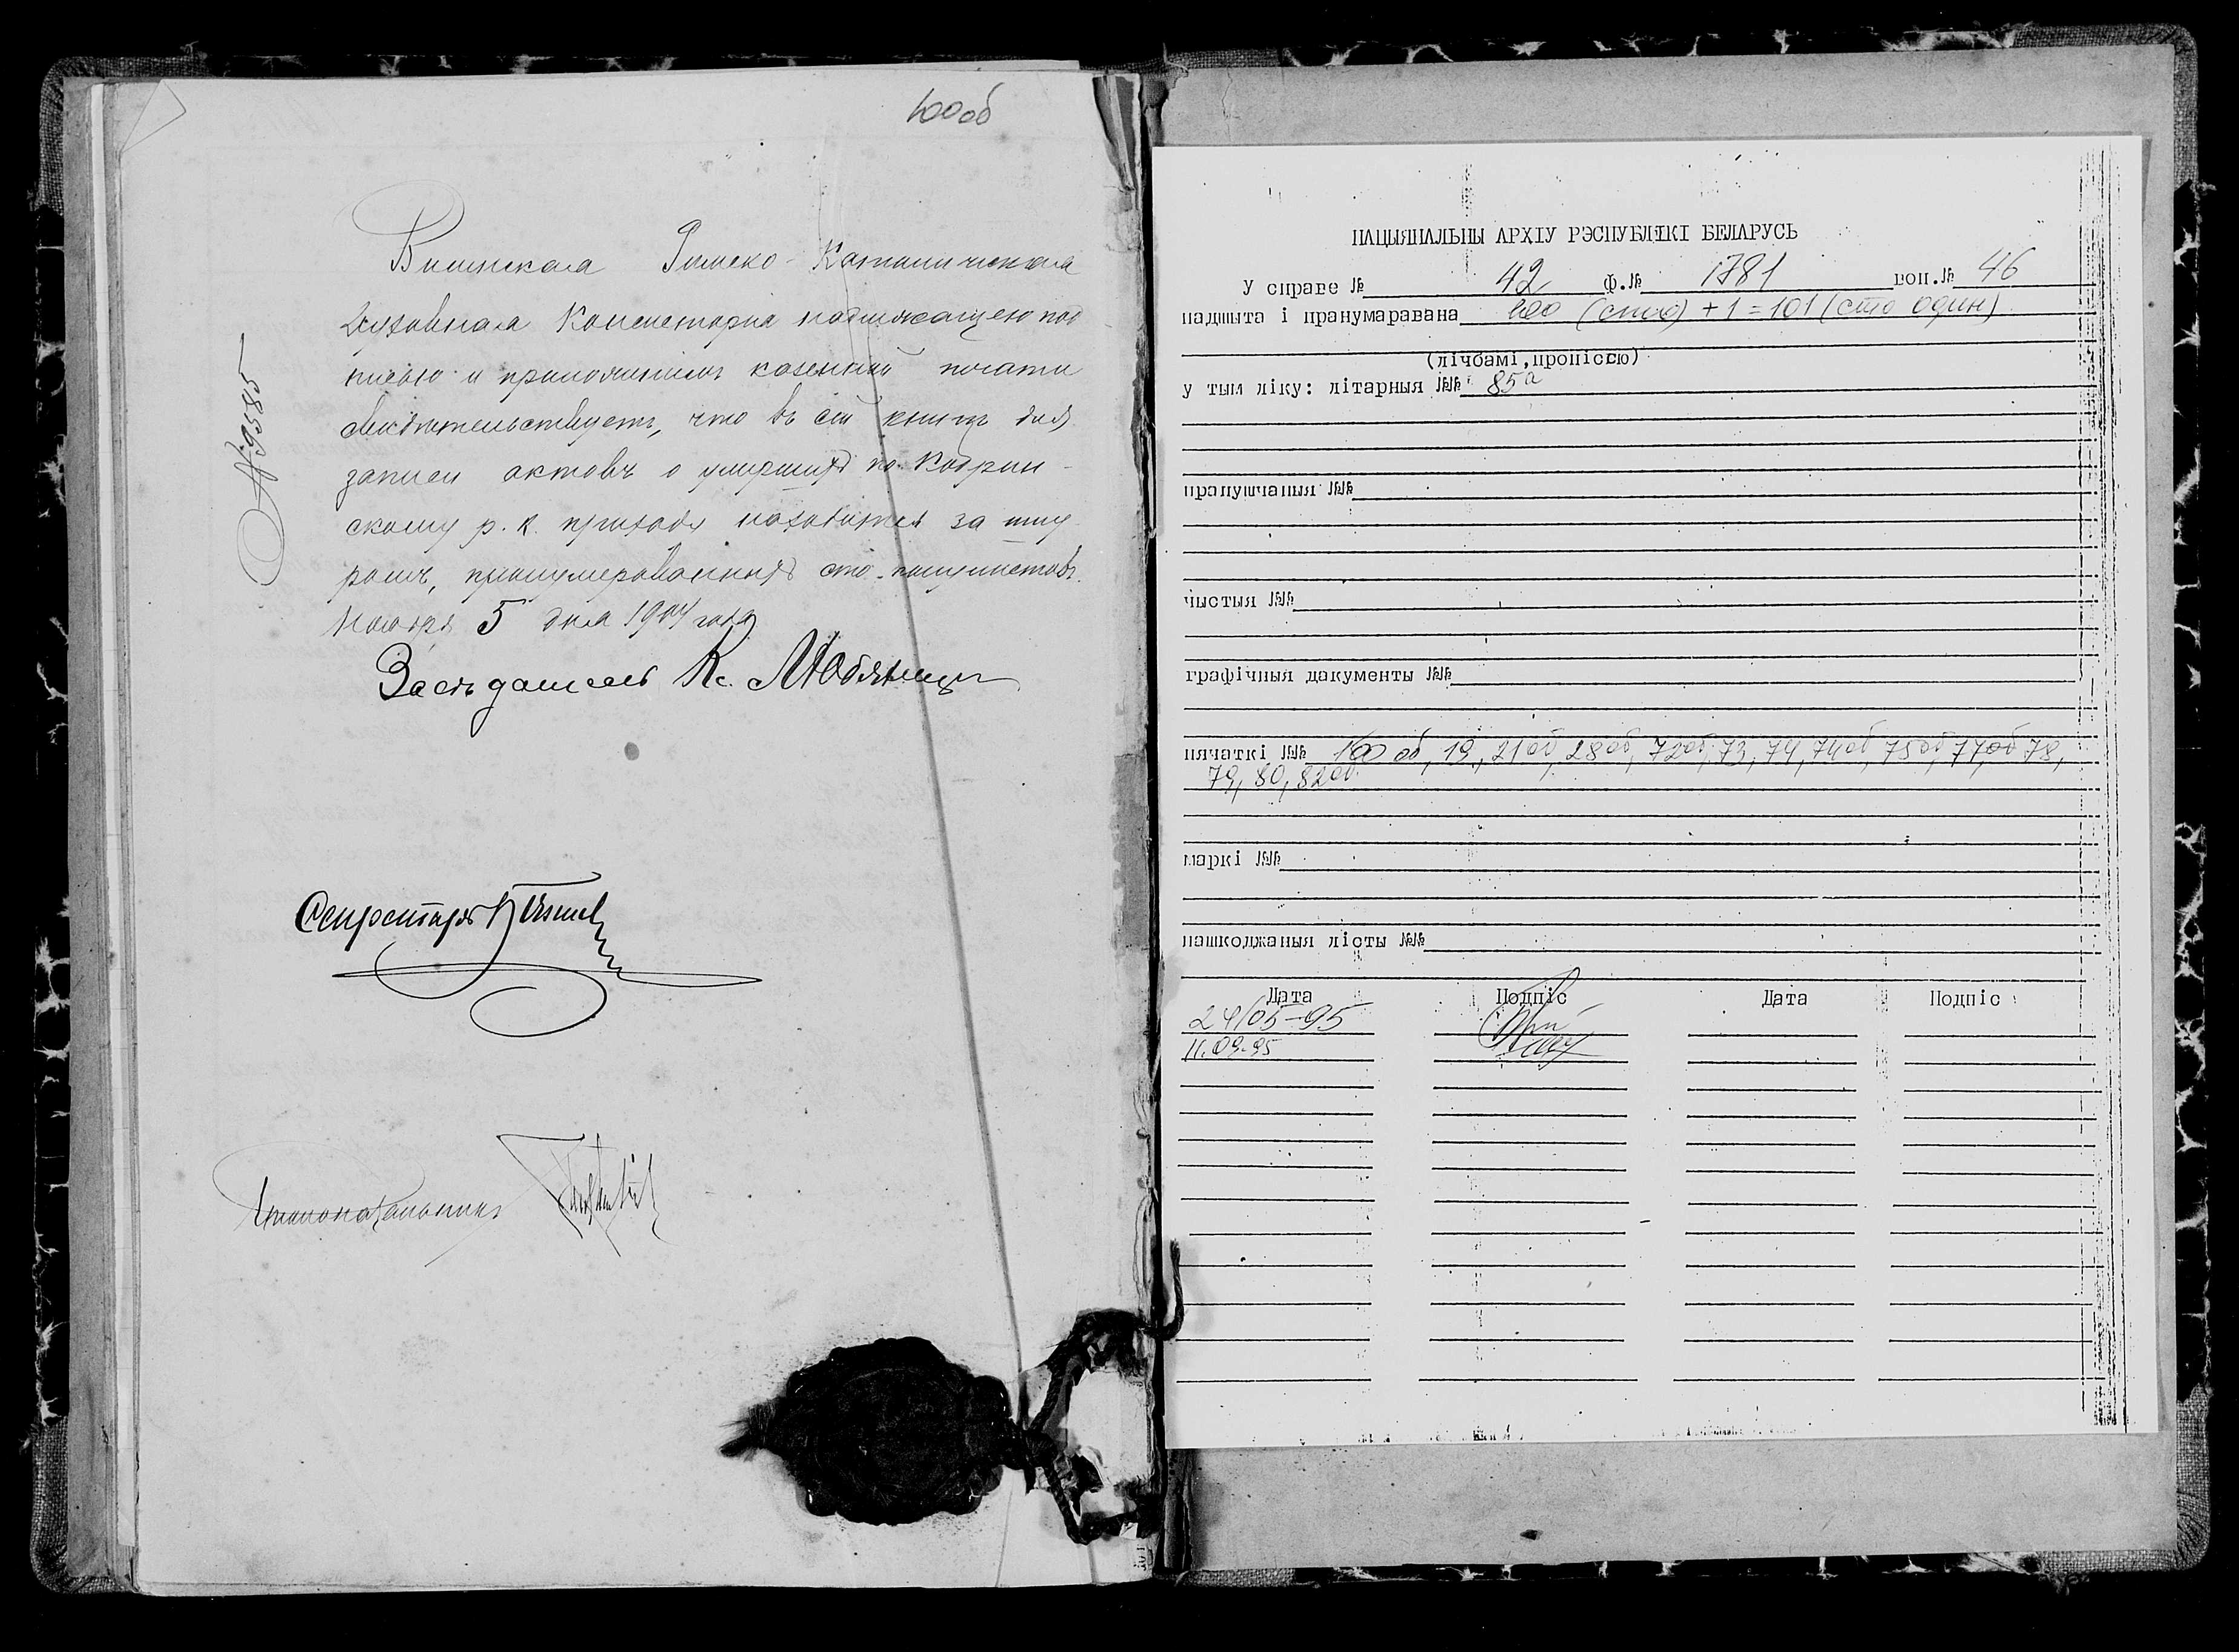 100об
Виленская Римско-Католическая
Духовная Консисторія надлежащею под
писью и приложеніемъ казенной печати
свидѣтельствуетъ, что въ сей книгѣ для
записи актовъ о умершихъ по Кобрин-
скому р. к. приходу находится за шну
ромъ, пронумерованныхъ сто листовъ.
Ноября 5 дня 1904 года
№ 9585
Засѣдатель К.
Секретарь
Столоначальникъ
НАЦЫЯНАЛЬНЫ АРХІЎ РЭСПУБЛІКІ БЕЛАРУСЬ
У справе № 42 ф.№ 1781 воп.№ 46
падшыта і пранумаравана 100 (сто) + 1 = 101 (сто один)
(лічбамі, пропіссю)
у тым ліку: літарныя №№ 85а
прапушчаныя №№
чыстыя №№
графічныя дакументы №№
пячаткі №№ 100 об, 19, 21об, 28об, 72об, 73, 74, 74об, 75об, 77об, 78,
79, 80, 82об.
маркі №№
пашкоджаныя лісты №№
Дата Подпіс Дата Подпіс
24/05-95
11.09.95